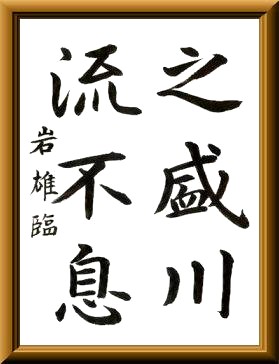 之盛川
流不息
岩雄臨